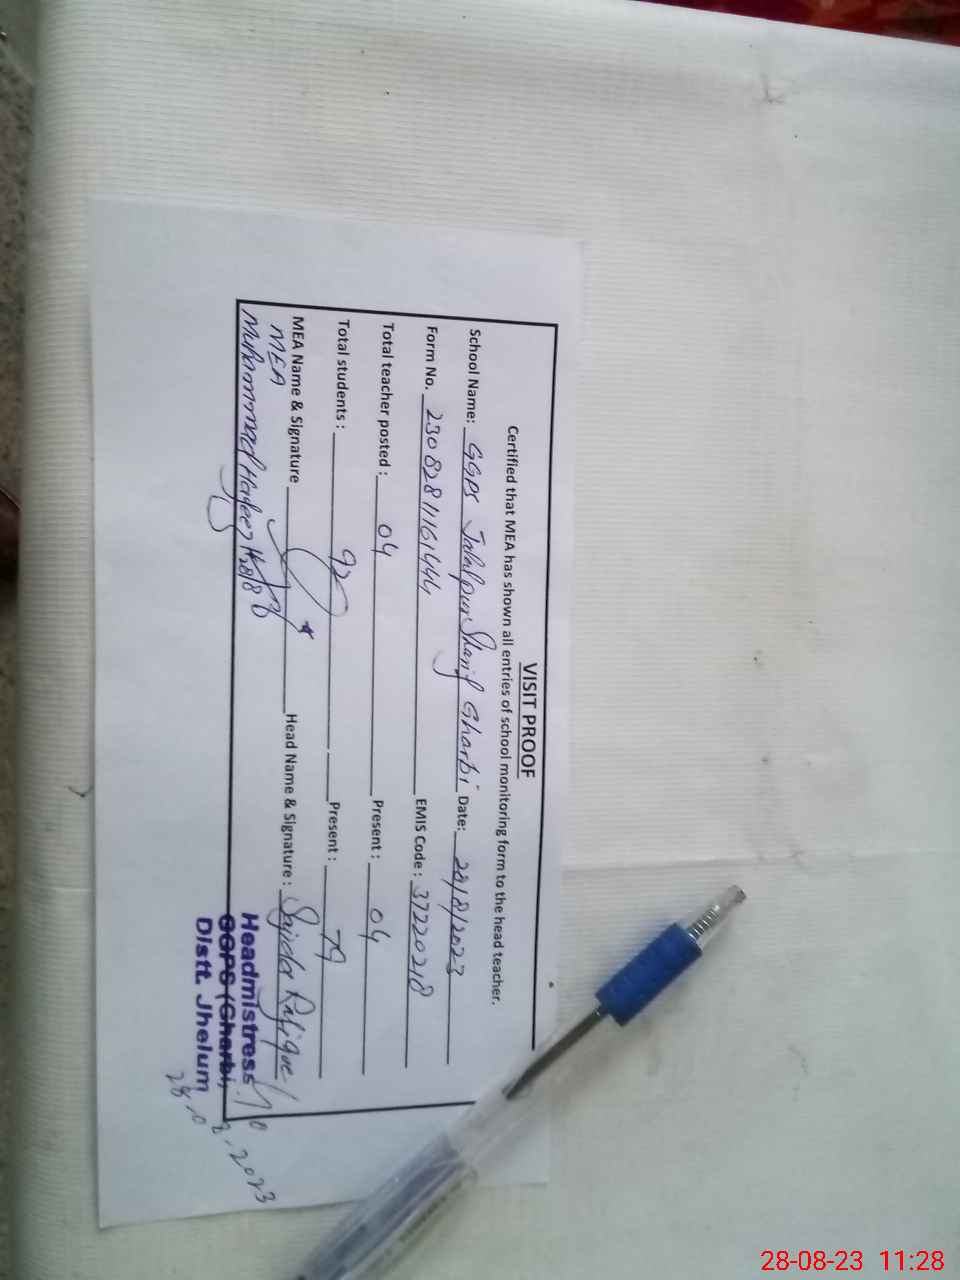 VISIT PROOF
Certified that MEA has shown all entries of school monitoring form to the head teacher.
School Name: GGPS Jalalpur Sharif Gharbi Date: 28/8/2023
Form No. 23082811161444 EMIS Code: 37220218
Total teacher posted : 04 Present : 04
Total students : 92 Present : 79
MEA Name & Signature Head Name & Signature : Sajida Rafique
MEA
Muhammad Hafeez
Headmistress
GGPS (Gharbi)
Distt. Jhelum
28.08.2023
28-08-23 11:28